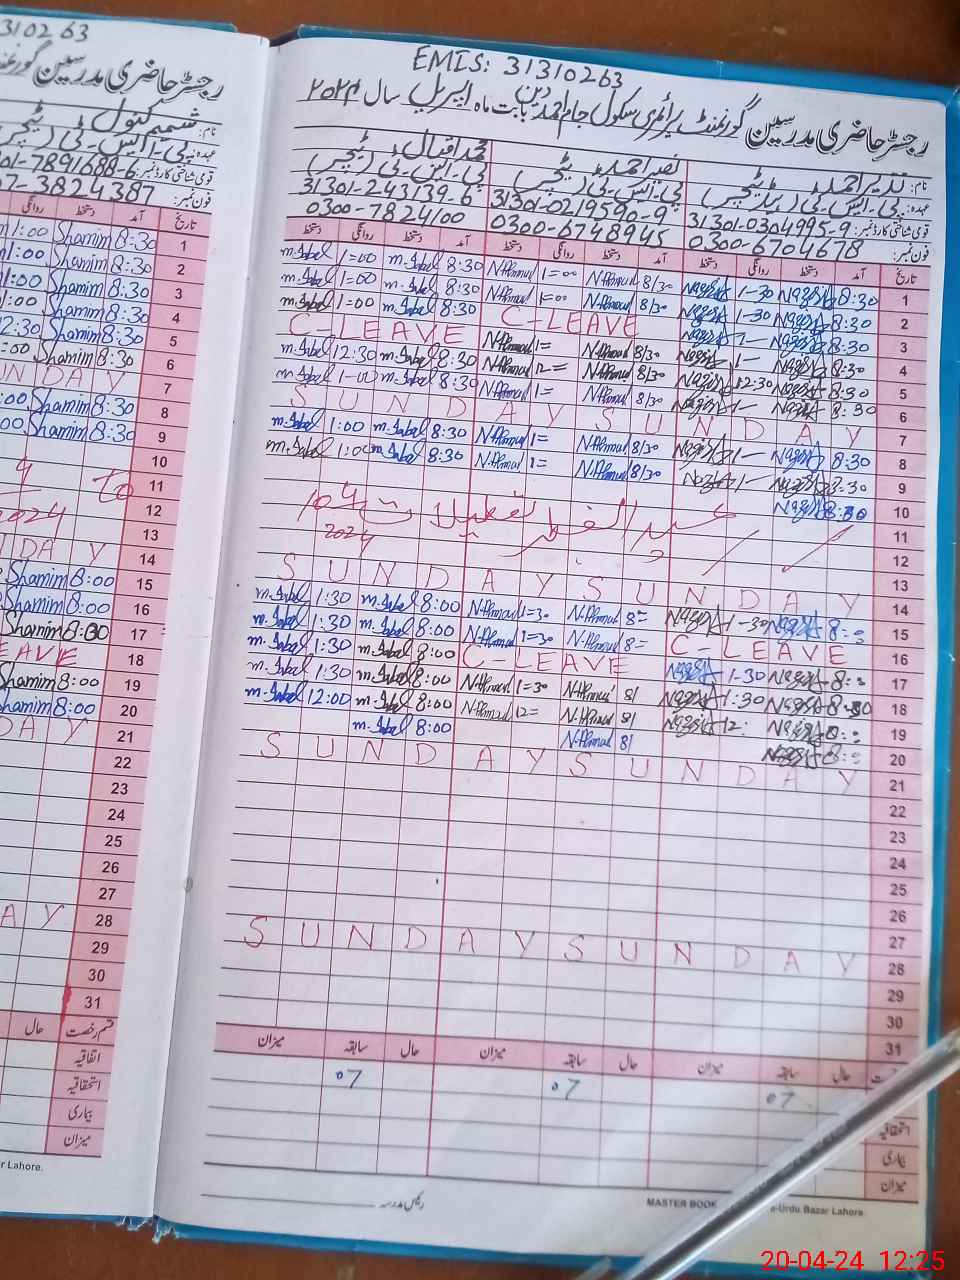 310263
رجسٹر حاضری مدرسین
نام: شمیم کنول
عہدہ: پی۔ایس۔ٹی (ٹیچر)
قومی شناختی کارڈ نمبر: 01-7891688-6
فون نمبر: 07-3824387
روانگی دستخط آمد تاریخ
1:00 Shamim 8:30 1
1:00 Shamim 8:30 2
1:00 Shamim 8:30 3
1:00 Shamim 8:30 4
12:30 Shamim 8:30 5
:00 Shamim 8:30 6
UNDAY 7
:00 Shamim 8:30 8
00 Shamim 8:30 9
10
to 11
2024 12
13
DAY 14
Shamim 8:00 15
Shamim 8:00 16
Shamim 8:00 17
EAVE 18
Shamim 8:00 19
Shamim 8:00 20
DAY 21
22
23
24
25
26
27
AY 28
29
30
31
حال قسم رخصت
اتفاقیہ
استحقاقیہ
بیماری
میزان
r Lahore.
EMIS: 31310263
رجسٹر حاضری مدرسین گورنمنٹ پرائمری سکول جام احمد دین بابت ماہ اپریل سال ۲۰۲۴
نام: نذیر احمد نصیر احمد محمد اقبال
عہدہ: پی۔ایس۔ٹی (ہیڈ ٹیچر) پی۔ایس۔ٹی (ٹیچر) پی۔ایس۔ٹی (ٹیچر)
قومی شناختی کارڈ نمبر: 31301-0304995-9 31301-0219590-9 31301-243139-6
فون نمبر: 0300-6704678 0300-6748945 0300-7824100
دستخط روانگی دستخط آمد دستخط روانگی دستخط آمد دستخط روانگی دستخط آمد تاریخ
m.Iqbal 1=00 m.Iqbal 8:30 N.Ahmad 1=00 N.Ahmad 8/30 1-30 8:30 1
m.Iqbal 1=00 m.Iqbal 8:30 N.Ahmad 1=00 N.Ahmad 8/30 1-30 8:30 2
m.Iqbal 1:00 m.Iqbal 8:30 C-LEAVE 1- 8:30 3
C-LEAVE N.Ahmad 1= N.Ahmad 8/30 1- 8:30 4
m.Iqbal 12:30 m.Iqbal 8:30 N.Ahmad 12= N.Ahmad 8/30 12:30 8:30 5
m.Iqbal 1-00 m.Iqbal 8:30 N.Ahmad 1= N.Ahmad 8/30 1- 8:30 6
SUNDAY SUNDAY 7
m.Iqbal 1:00 m.Iqbal 8:30 N.Ahmad 1= N.Ahmad 8/30 1- 8:30 8
m.Iqbal 1:00 m.Iqbal 8:30 N.Ahmad 1= N.Ahmad 8/30 1- 8:30 9
8:30 10
عید الفطر تعطیلات 11
2024 12
13
SUNDAY SUNDAY 14
m.Iqbal 1:30 m.Iqbal 8:00 N.Ahmad 1=30 N.Ahmad 8= 1-30 8: 15
m.Iqbal 1:30 m.Iqbal 8:00 N.Ahmad 1=30 N.Ahmad 8= C-LEAVE 16
m.Iqbal 1:30 m.Iqbal 8:00 C-LEAVE 1-30 8: 17
m.Iqbal 1:30 m.Iqbal 8:00 N.Ahmad 1=30 N.Ahmad 8/ 1:30 18
m.Iqbal 12:00 m.Iqbal 8:00 N.Ahmad 12= N.Ahmad 8/ 12: 8: 19
m.Iqbal 8:00 N.Ahmad 8/ 8: 20
SUNDAY SUNDAY 21
22
23
24
25
26
27
SUNDAY SUNDAY 28
29
30
31
میزان سابقہ حال میزان سابقہ حال میزان سابقہ حال
07 07 07
استحقاقیہ
بیماری
میزان
رئیس مدرسہ
MASTER BOOK
-Urdu Bazar Lahore
20-04-24 12:25